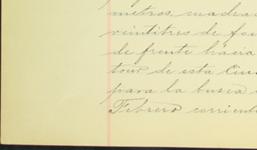 metros, madera
veintitres de fon
de frente hácia
tour de esta Ciu
para la busca
Febrero corriente